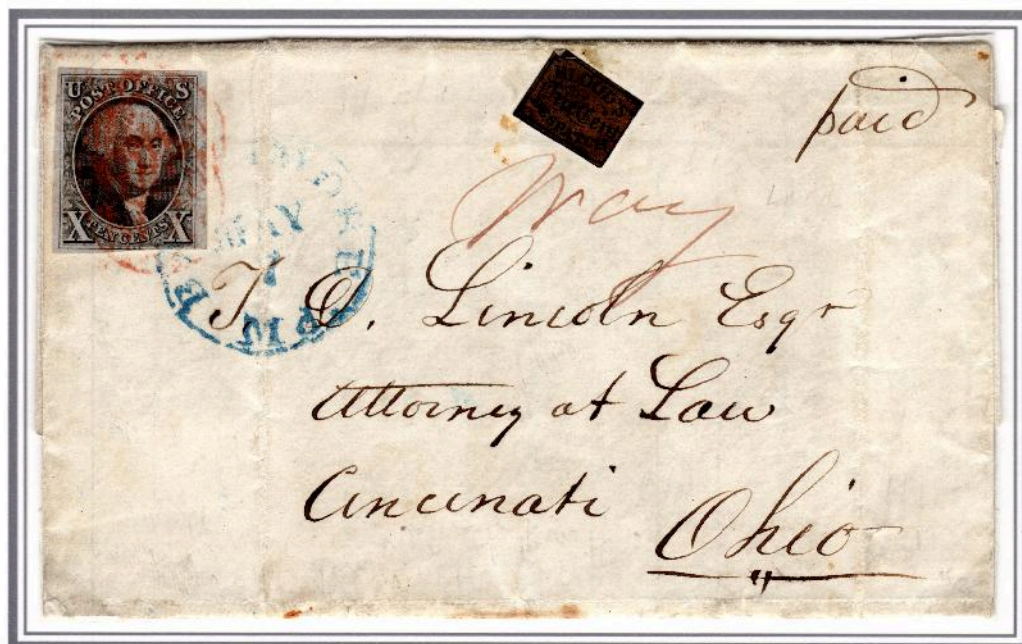 U S
POST OFFICE
X TEN CENTS X
paid
Way
MAY
7
T. D. Lincoln Esqr
Attorney at Law
Cincinati
Ohio